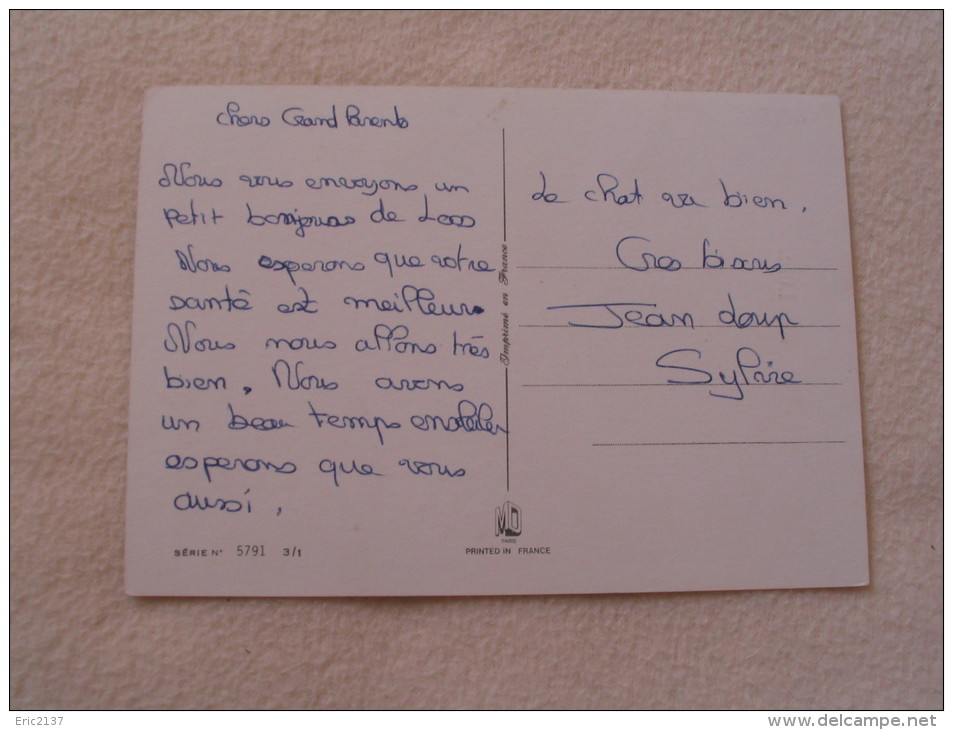 chers Grand Parents
Nous vous envoyons un
petit bonjour de
Nous esperons que votre
santé est meilleur.
Nous nous allons très
bien. Nous avons
un beau temps
esperons que vous
aussi.
SÉRIE N° 5791 3/1
Imprimé en France
MD
PARIS
PRINTED IN FRANCE
Le chat va bien.
Gros bisous
Jean Loup
Sylvie
Eric2137
www.delcampe.net